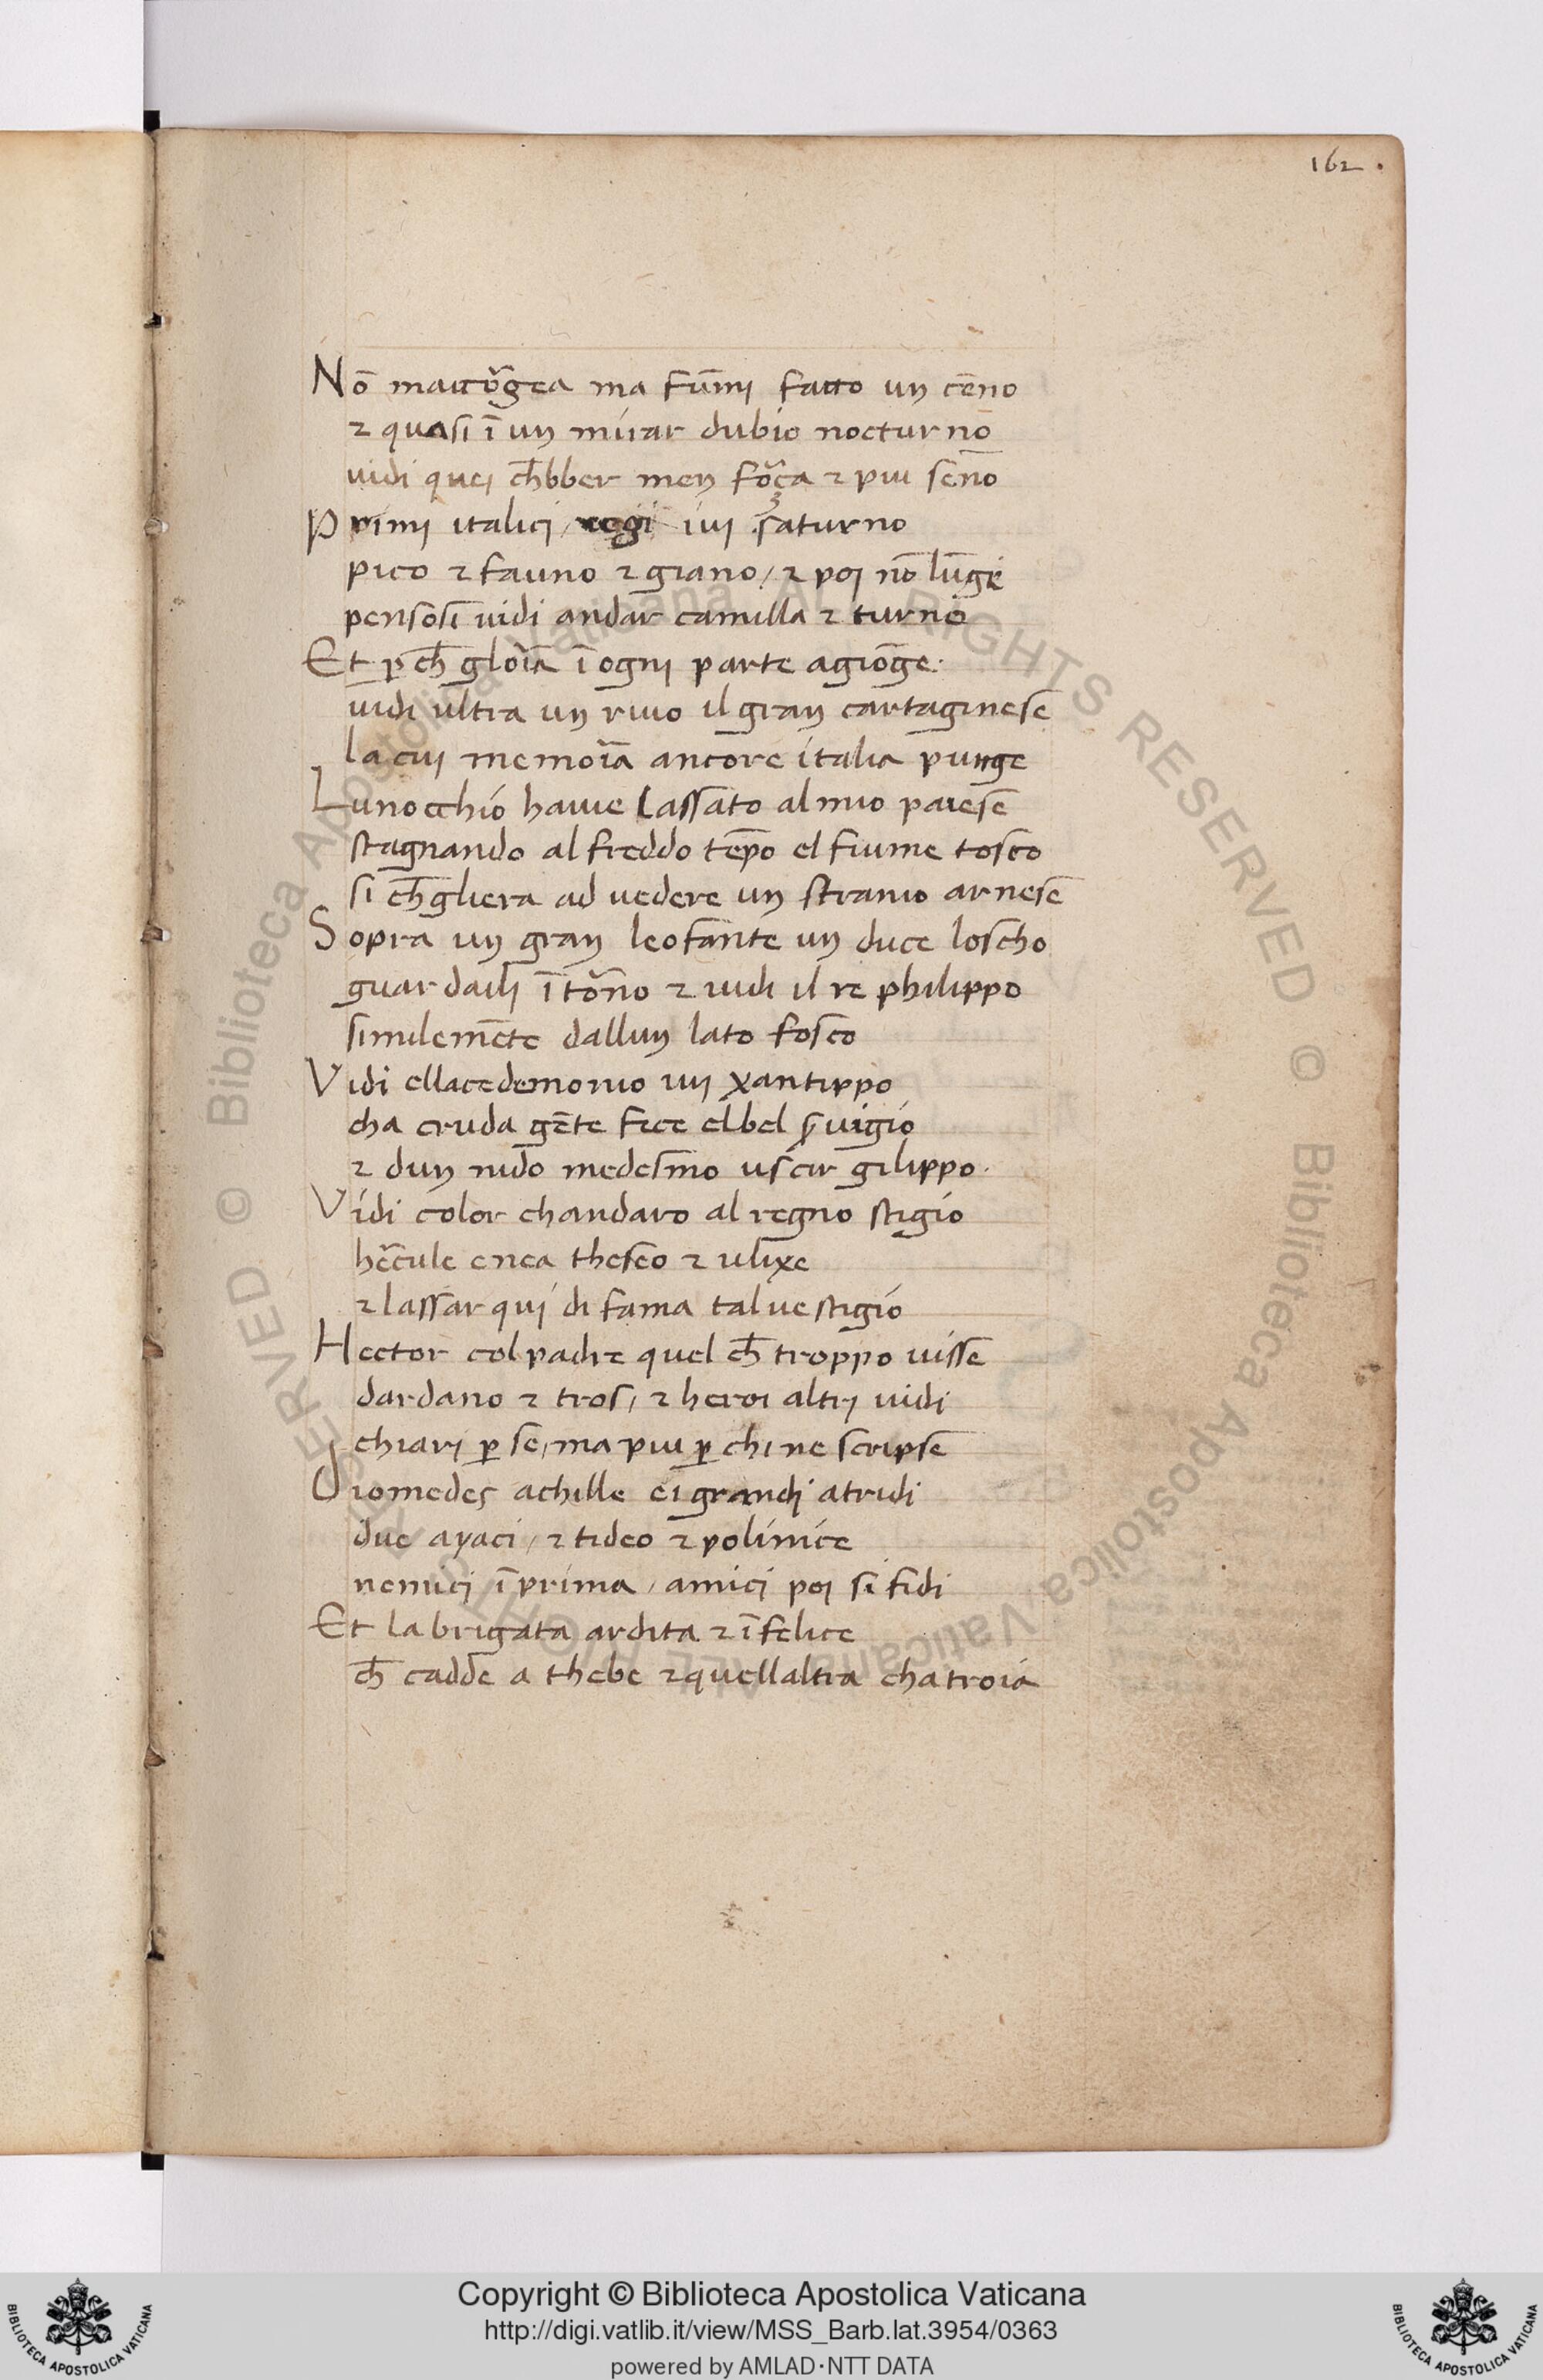 162.
Nō maccōrgea ma fūmi facto un cēno
⁊ quasi ī un mirar dubio nocturno
uidi quei ch̄bber men fōrça ⁊ piu sēno
Primi italici / regi iui saturno
pico ⁊ fauno ⁊ giano / ⁊ poi nō lūge
pensosi uidi andar camilla ⁊ turno
Et ꝑ ch̄ gloīa ī ogni parte agiōge.
uidi ultra un riuo il gran cartaginese
la cui memoīa ancore italia punge
Lunocchio hauue lassato al mio paiese
stagnando al freddo tēpo el fiume tosco
si ch̄ gliera ad uedere un stranio arnese
Sopra un gran leofante un duce loscho
guardaili ī tōrno ⁊ uidi il re philippo
similemēte dallun lato fosco
Vidi ellacedemonio iui xantippo
cha cruda gēte fece el bel ẜuigio
⁊ dun nido medesmo uscir gilippo.
Vidi color chandaro al regno stigio
hērcule enea theseo ⁊ ulixe
⁊ lassar qui di fama tal uestigio
Hector col padre quel ch̄ troppo uisse
dardano ⁊ tros / ⁊ heroi altri uidi
chiari ꝑ se / ma piu ꝑ chi ne scripse
Diomedes achille ei grandi atridi
due ayaci / ⁊ tideo ⁊ polinice
nemici ī prima / amici poi si fidi
Et la brigata ardita ⁊ īfelice
ch̄ cadde a thebe ⁊ quellaltra cha troia
© Biblioteca Apostolica Vaticana ALL RIGHTS RESERVED © Biblioteca Apostolica Vaticana ALL RIGHTS RESERVED
BIBLIOTECA APOSTOLICA VATICANA
Copyright © Biblioteca Apostolica Vaticana
http://digi.vatlib.it/view/MSS_Barb.lat.3954/0363
powered by AMLAD·NTT DATA
BIBLIOTECA APOSTOLICA VATICANA